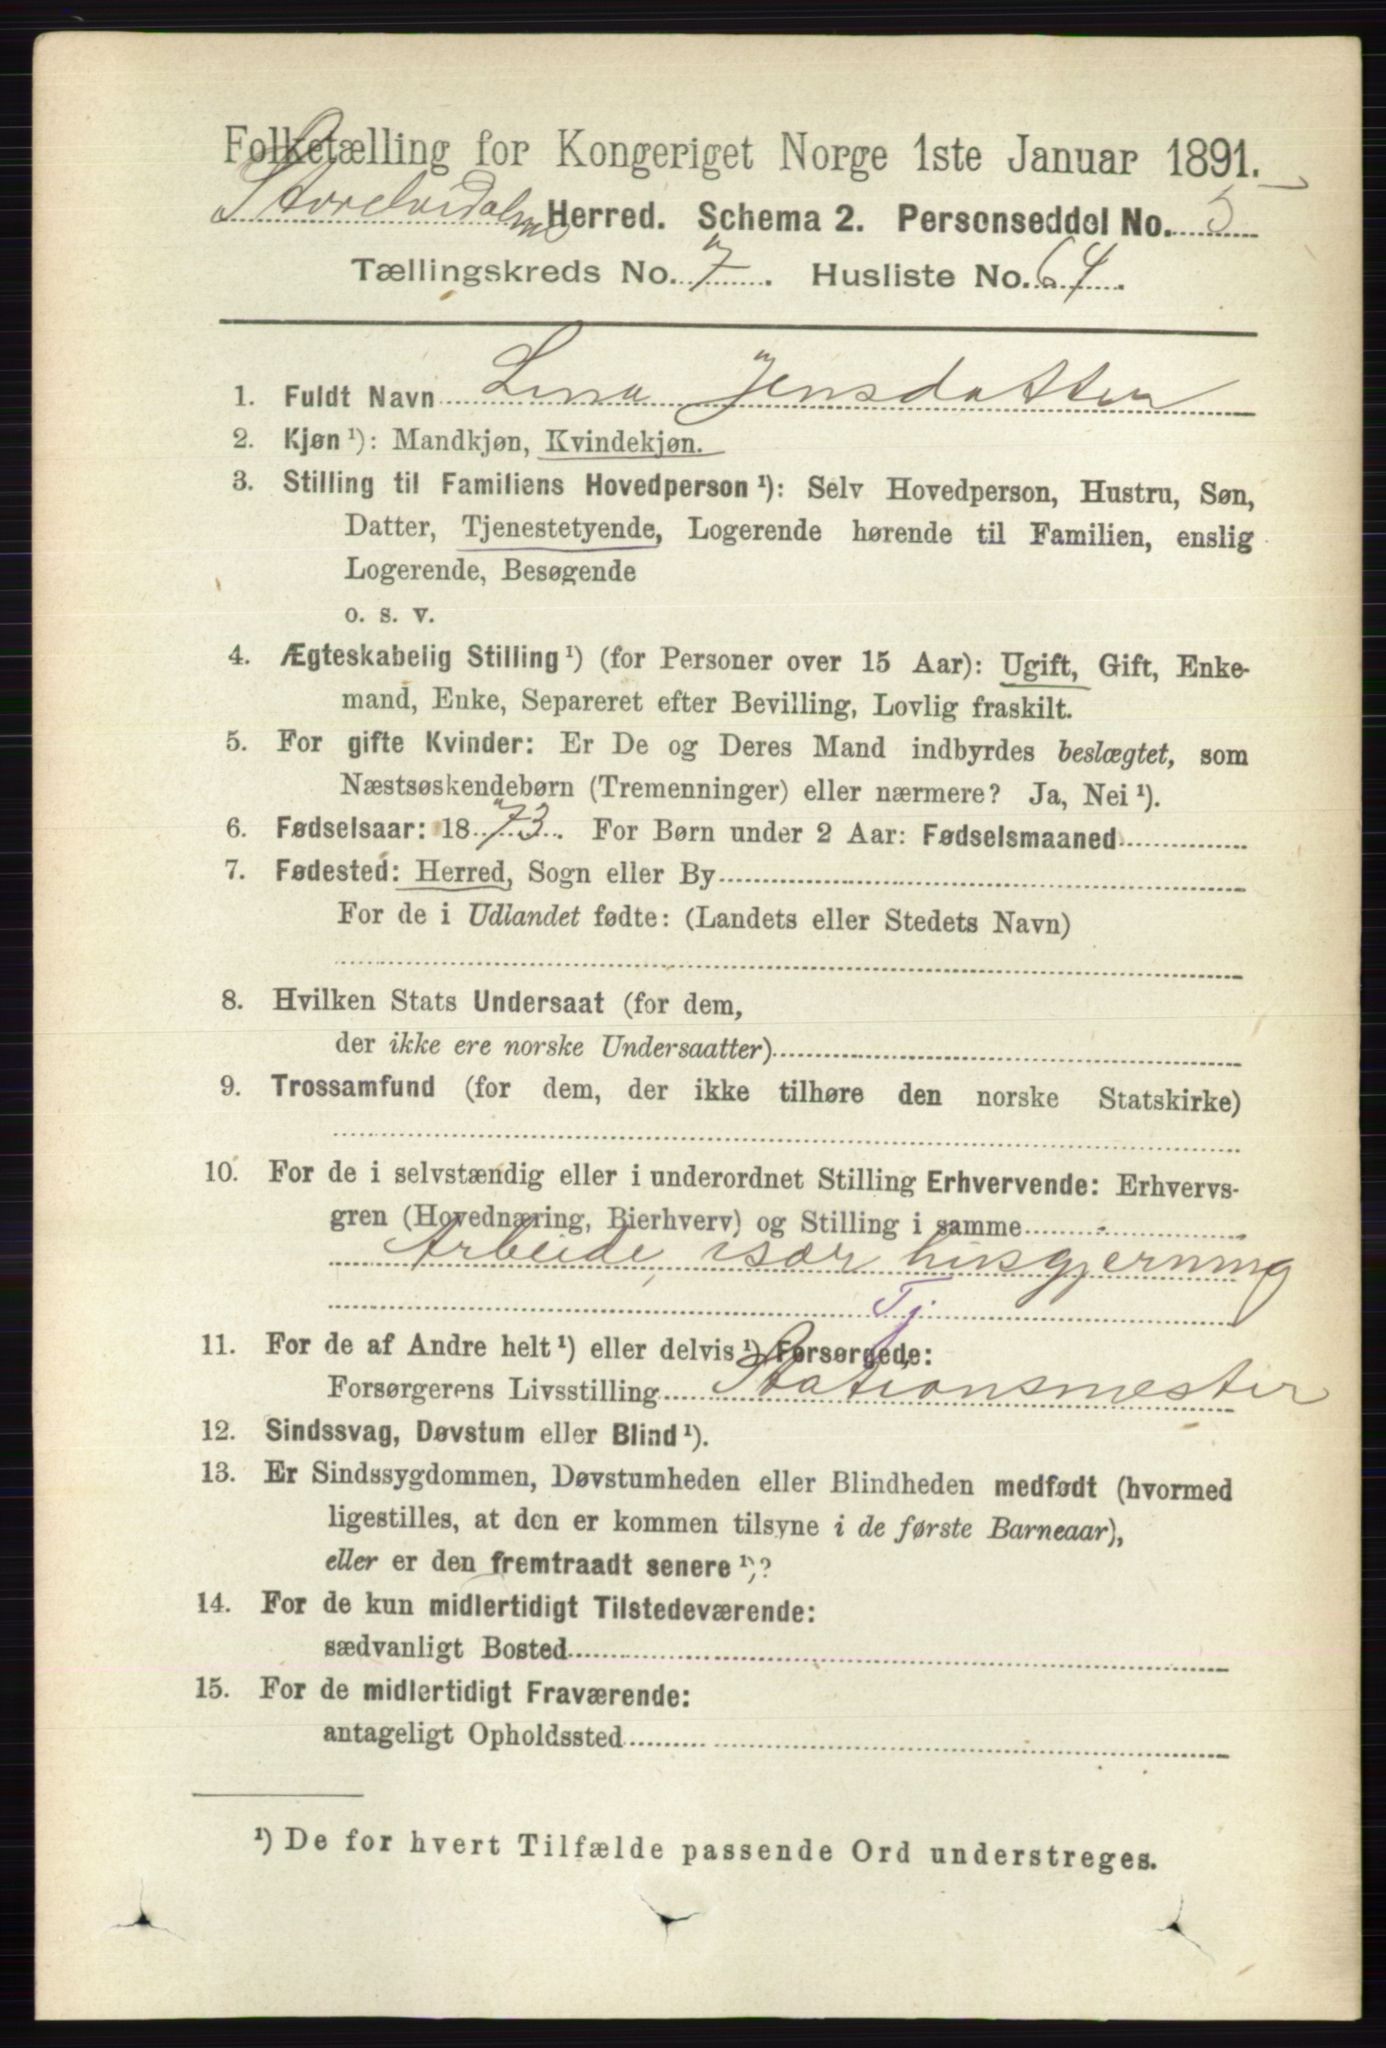 Folketælling for Kongeriget Norge 1ste Januar 1891.
Storelvedalens Herred. Schema 2. Personseddel No. 5
Tællingskreds No. 7. Husliste No. 64.
1. Fuldt Navn Lina Jensdatter
2. Kjøn ¹): Mandkjøn, Kvindekjøn.
3. Stilling til Familiens Hovedperson ¹): Selv Hovedperson, Hustru, Søn,
Datter, Tjenestetyende, Logerende hørende til Familien, enslig
Logerende, Besøgende
o. s. v.
4. Ægteskabelig Stilling ¹) (for Personer over 15 Aar): Ugift, Gift, Enke-
mand, Enke, Separeret efter Bevilling, Lovlig fraskilt.
5. For gifte Kvinder: Er De og Deres Mand indbyrdes beslægtet, som
Næstsøskendebørn (Tremenninger) eller nærmere? Ja, Nei ¹).
6. Fødselsaar: 1873. For Børn under 2 Aar: Fødselsmaaned
7. Fødested: Herred, Sogn eller By
For de i Udlandet fødte: (Landets eller Stedets Navn)
8. Hvilken Stats Undersaat (for dem,
der ikke ere norske Undersaatter)
9. Trossamfund (for dem, der ikke tilhøre den norske Statskirke)
10. For de i selvstændig eller i underordnet Stilling Erhvervende: Erhvervs-
gren (Hovednæring, Bierhverv) og Stilling i samme
Arbeide, især husgjerning
Tj
11. For de af Andre helt ¹) eller delvis ¹) Forsørgede:
Forsørgerens Livsstilling Stationsmester
12. Sindssvag, Døvstum eller Blind ¹).
13. Er Sindssygdommen, Døvstumheden eller Blindheden medfødt (hvormed
ligestilles, at den er kommen tilsyne i de første Barneaar),
eller er den fremtraadt senere ¹)?
14. For de kun midlertidigt Tilstedeværende:
sædvanligt Bosted
15. For de midlertidigt Fraværende:
antageligt Opholdssted
¹) De for hvert Tilfælde passende Ord understreges.